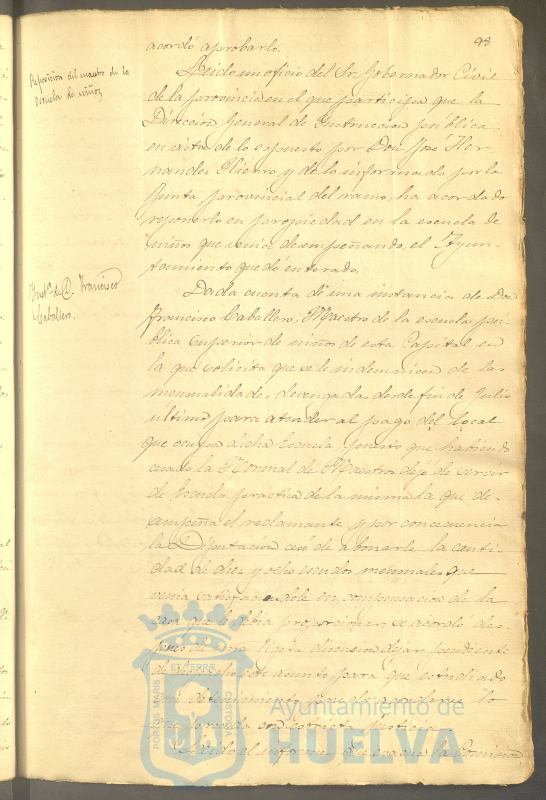 98
acordó aprobarlo.
Reposicion del maestro de la
escuela de niños
Leido un oficio del Sr. Gobernador Civil
de la provincia en el que participa que la
Direccion General de Instruccion pública,
en vista de lo espuesto por Don José Her-
nandez Hierro y de lo informado por la
Junta provincial del ramo, ha acordado
reponerlo en propiedad en la escuela de
niños que venia desempeñando, el Ayun-
tamiento quedó enterado.
Inst.ª de D. Francisco
Caballero.
Dada cuenta de una instancia de Don
Francisco Caballero, Maestro de la escuela pú-
blica superior de niños de esta Capital en
la que solicita que se le indemnicen de las
mensualidades devengadas desde fin de Julio
último para atender al pago del local
que ocupa dicha Escuela, puesto que habiendo
cesado la Normal de Maestros dejó de servir
de Escuela práctica de la misma la que de-
sempeña el reclamante y por consecuencia
la Diputacion cesó de abonarle la canti-
dad de diez y ocho escudos mensuales que
venia satisfaciendole en compensacion de la
casa que le debia proporcionar, se acordó des-
pues de una ligera discusion dejar pendiente
de este asunto para que estudiado
con detenimiento se pueda acordar lo
que proceda en estricta justicia.
Leido el informe que evacua la Comision
PORTUS MARIS ET TERRÆ CUSTODIA
Ayuntamiento de
HUELVA